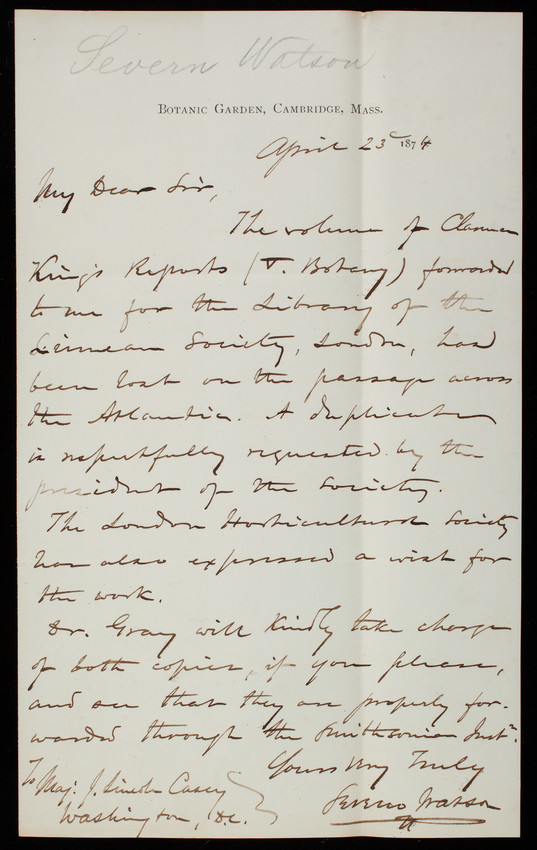 Severn Watson
BOTANIC GARDEN, CAMBRIDGE, MASS.
April 23d 1874
My Dear Sir,
The volume of Clarence
King's Reports (V. Botany) forwarded
to me for the Library of the
Linnean Society, London, has
been lost on the passage across
the Atlantic. A duplicate
is respectfully requested by the
president of the Society.
The London Horticultural Society
has also expressed a wish for
the work.
Dr. Gray will kindly take charge
of both copies, if you please,
and see that they are properly for-
warded through the Smithsonian Instn.
Yours very Truly
Sereno Watson
To Maj. J. Lincoln Casey
Washington, D.C.